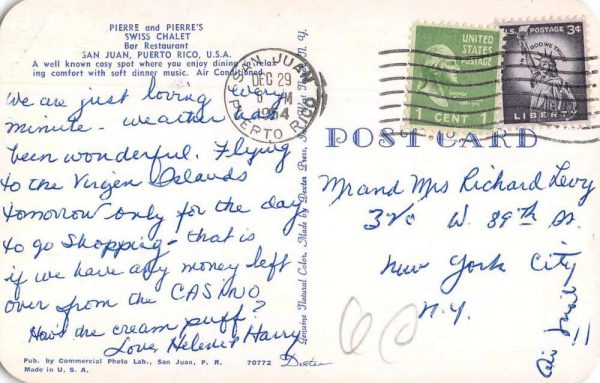 PIERRE and PIERRE'S
SWISS CHALET
Bar Restaurant
SAN JUAN, PUERTO RICO, U.S.A.
A well known cosy spot where you enjoy dining in relax
ing comfort with soft dinner music. Air Conditioned.
We are just loving every
minute - weather has
been wonderful. Flying
to the Virgin Islands
tomorrow only for the day
to go shopping - that is
if we have any money left
over from the CASINO
How's the cream puff?
Love, Helene & Harry
Pub. by Commercial Photo Lab., San Juan, P. R. 70772 Dexter
Made in U. S. A.
Genuine Natural Color. Made by Dexter Press, N. Y.
SAN JUAN
DEC 29
6 PM
1954
PUERTO RICO
UNITED
STATES
POSTAGE
1 CENT 1
U.S. POSTAGE 3¢
IN GOD WE TRUST
LIBERTY
POST CARD
Mr and Mrs Richard Levy
W. 89th St.
New York City
N.Y.
Air Mail